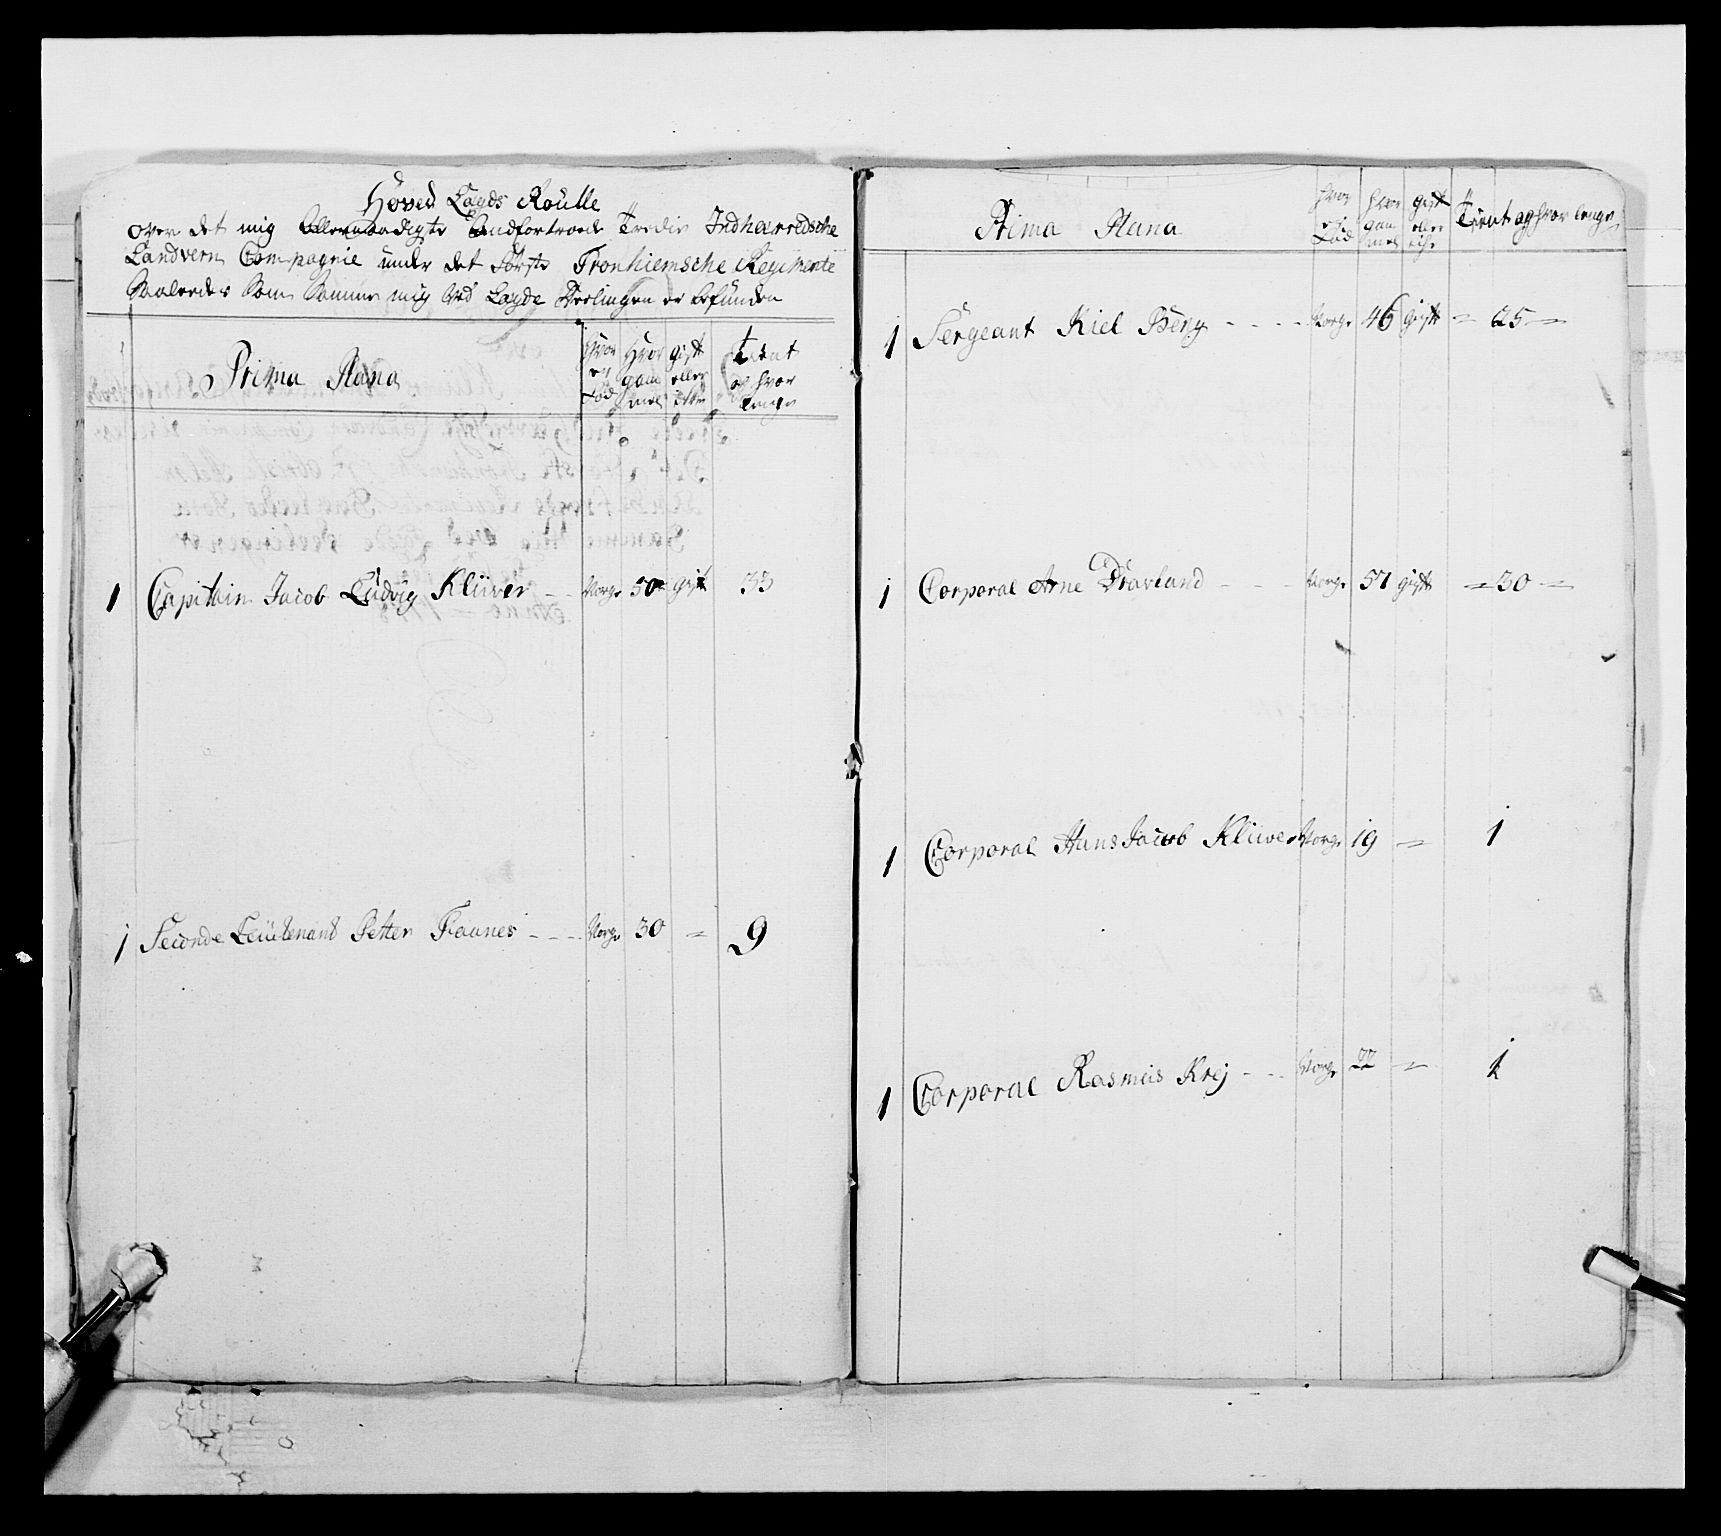 Hoved Lægds Roulle
over det mig Allernaadigste Andfortroede Tredie Indhærredsche
Landvern Compagnie under det Første Tronhiemsche Regimente
Saaledes Som Samme mig ved Lægds Deelingen er befunden
Prima Plana
Hvor er Fød
Hvor gam mel
gift eller ikke
Tient og hvor lenge
1 Capitain Jacob Ludvig Klüver - - Norge 50 gift 33
1 Seconde Leutenant Petter Faanes - - - Norge 30 = 9
Prima Plana
Hvor er Fød
Hvor gam mel
gift eller ikke
Tient og hvor lenge
1 Sergeant Kiel Berg - - - - Norge 46 gift = 25 =
1 Corporal Arne Dravland - - - - Norge 57 gift = 30 =
1 Corporal Hans Jacob Klüwer Norge 19 = 1
1 Corporal Rasmus Krej - - - Norge 22 = 1